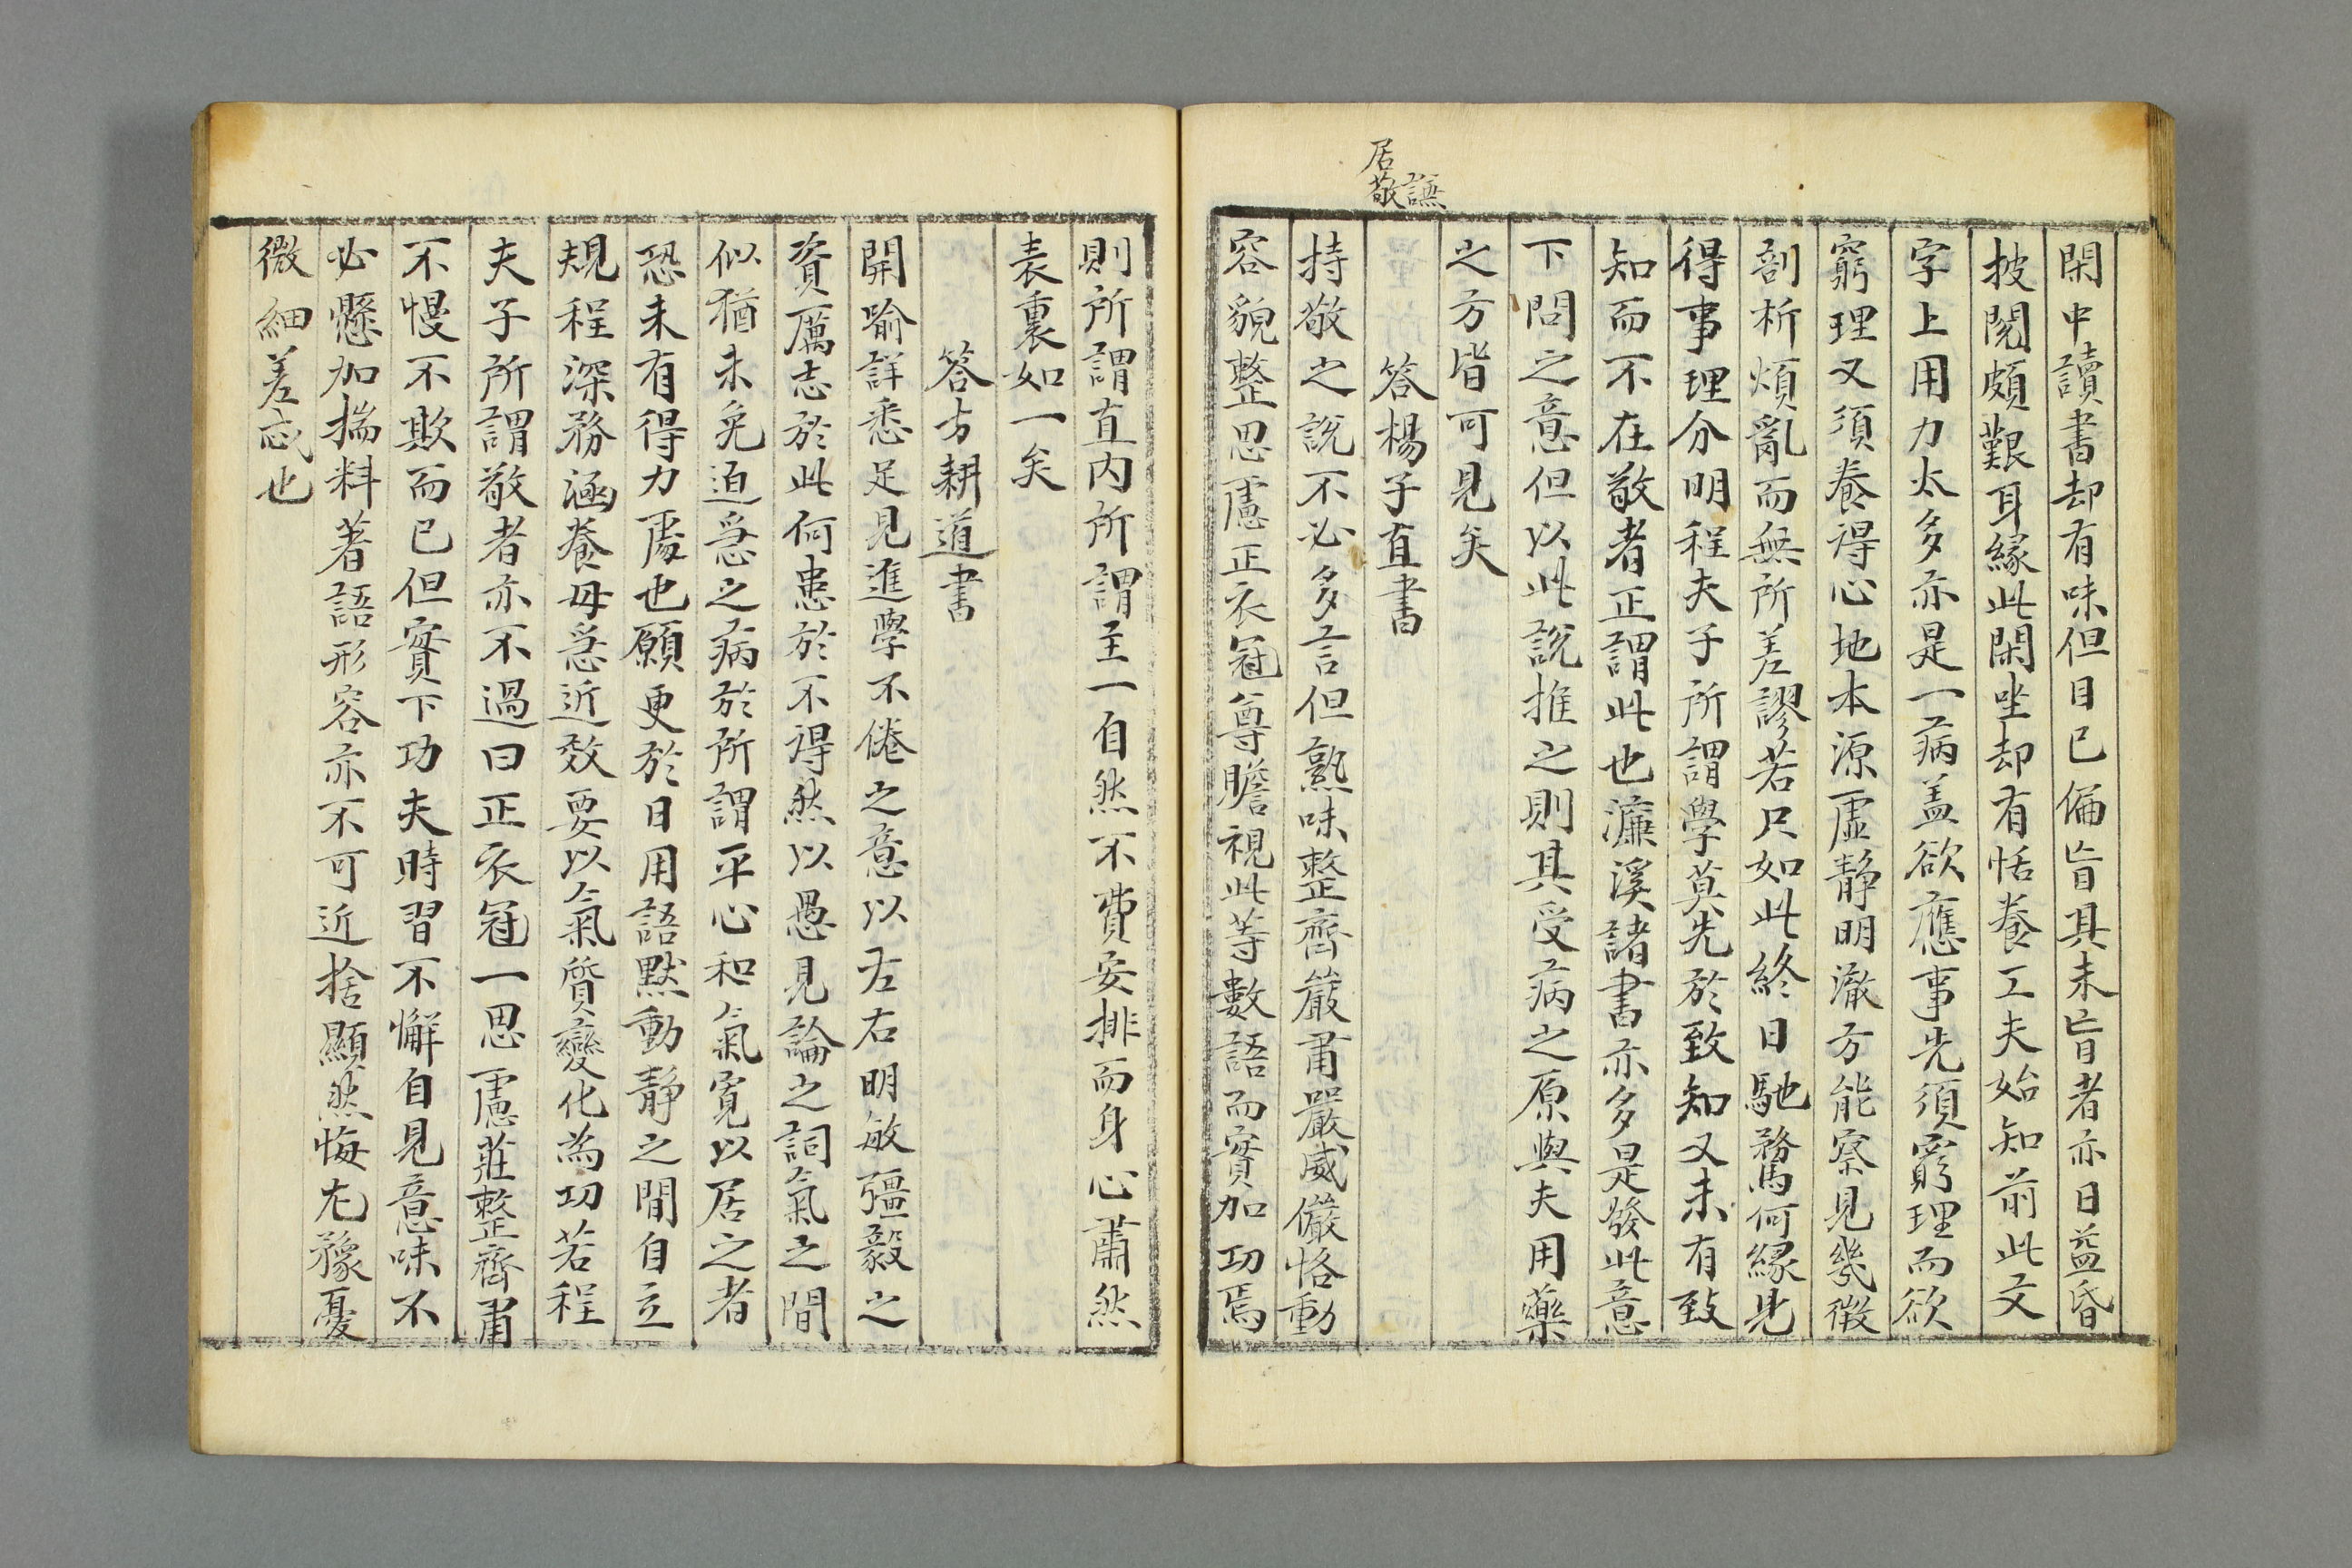 居敬
讌
閑中讀書却有味但目已偏盲其未盲者亦日益昏
披閱頗艱耳緣此閑坐却有恬養工夫始知前此文
字上用力太多亦是一病盖欲應事先須窮理而欲
窮理又須養得心地本源虛靜明澈方能察見幾微
剖析煩亂而無所差謬若只如此終日馳騖何緣見
得事理分明程夫子所謂學莫先於致知又未有致
知而不在敬者正謂此也濂溪諸書亦多是發此意
下問之意但以此說推之則其受病之原與夫用藥
之方皆可見矣
答楊子直書
持敬之說不必多言但熟味整齊嚴肅嚴威儼恪動
容貌整思慮正衣冠尊瞻視此等數語而實加功焉
則所謂直內所謂主一自然不費安排而身心肅然
表裏如一矣
答方耕道書
開喻詳悉足見進學不倦之意以左右明敏彊毅之
資厲志於此何患於不得然以愚見論之詞氣之間
似猶未免迫急之病於所謂平心和氣寬以居之者
恐未有得力處也願更於日用語默動靜之間自立
規程深務涵養毋急近效要以氣質變化為功若程
夫子所謂敬者亦不過曰正衣冠一思慮莊整齊肅
不慢不欺而已但實下功夫時習不懈自見意味不
必懸加揣料著語形容亦不可近捨顯然悔尤豫憂
微細差忒也